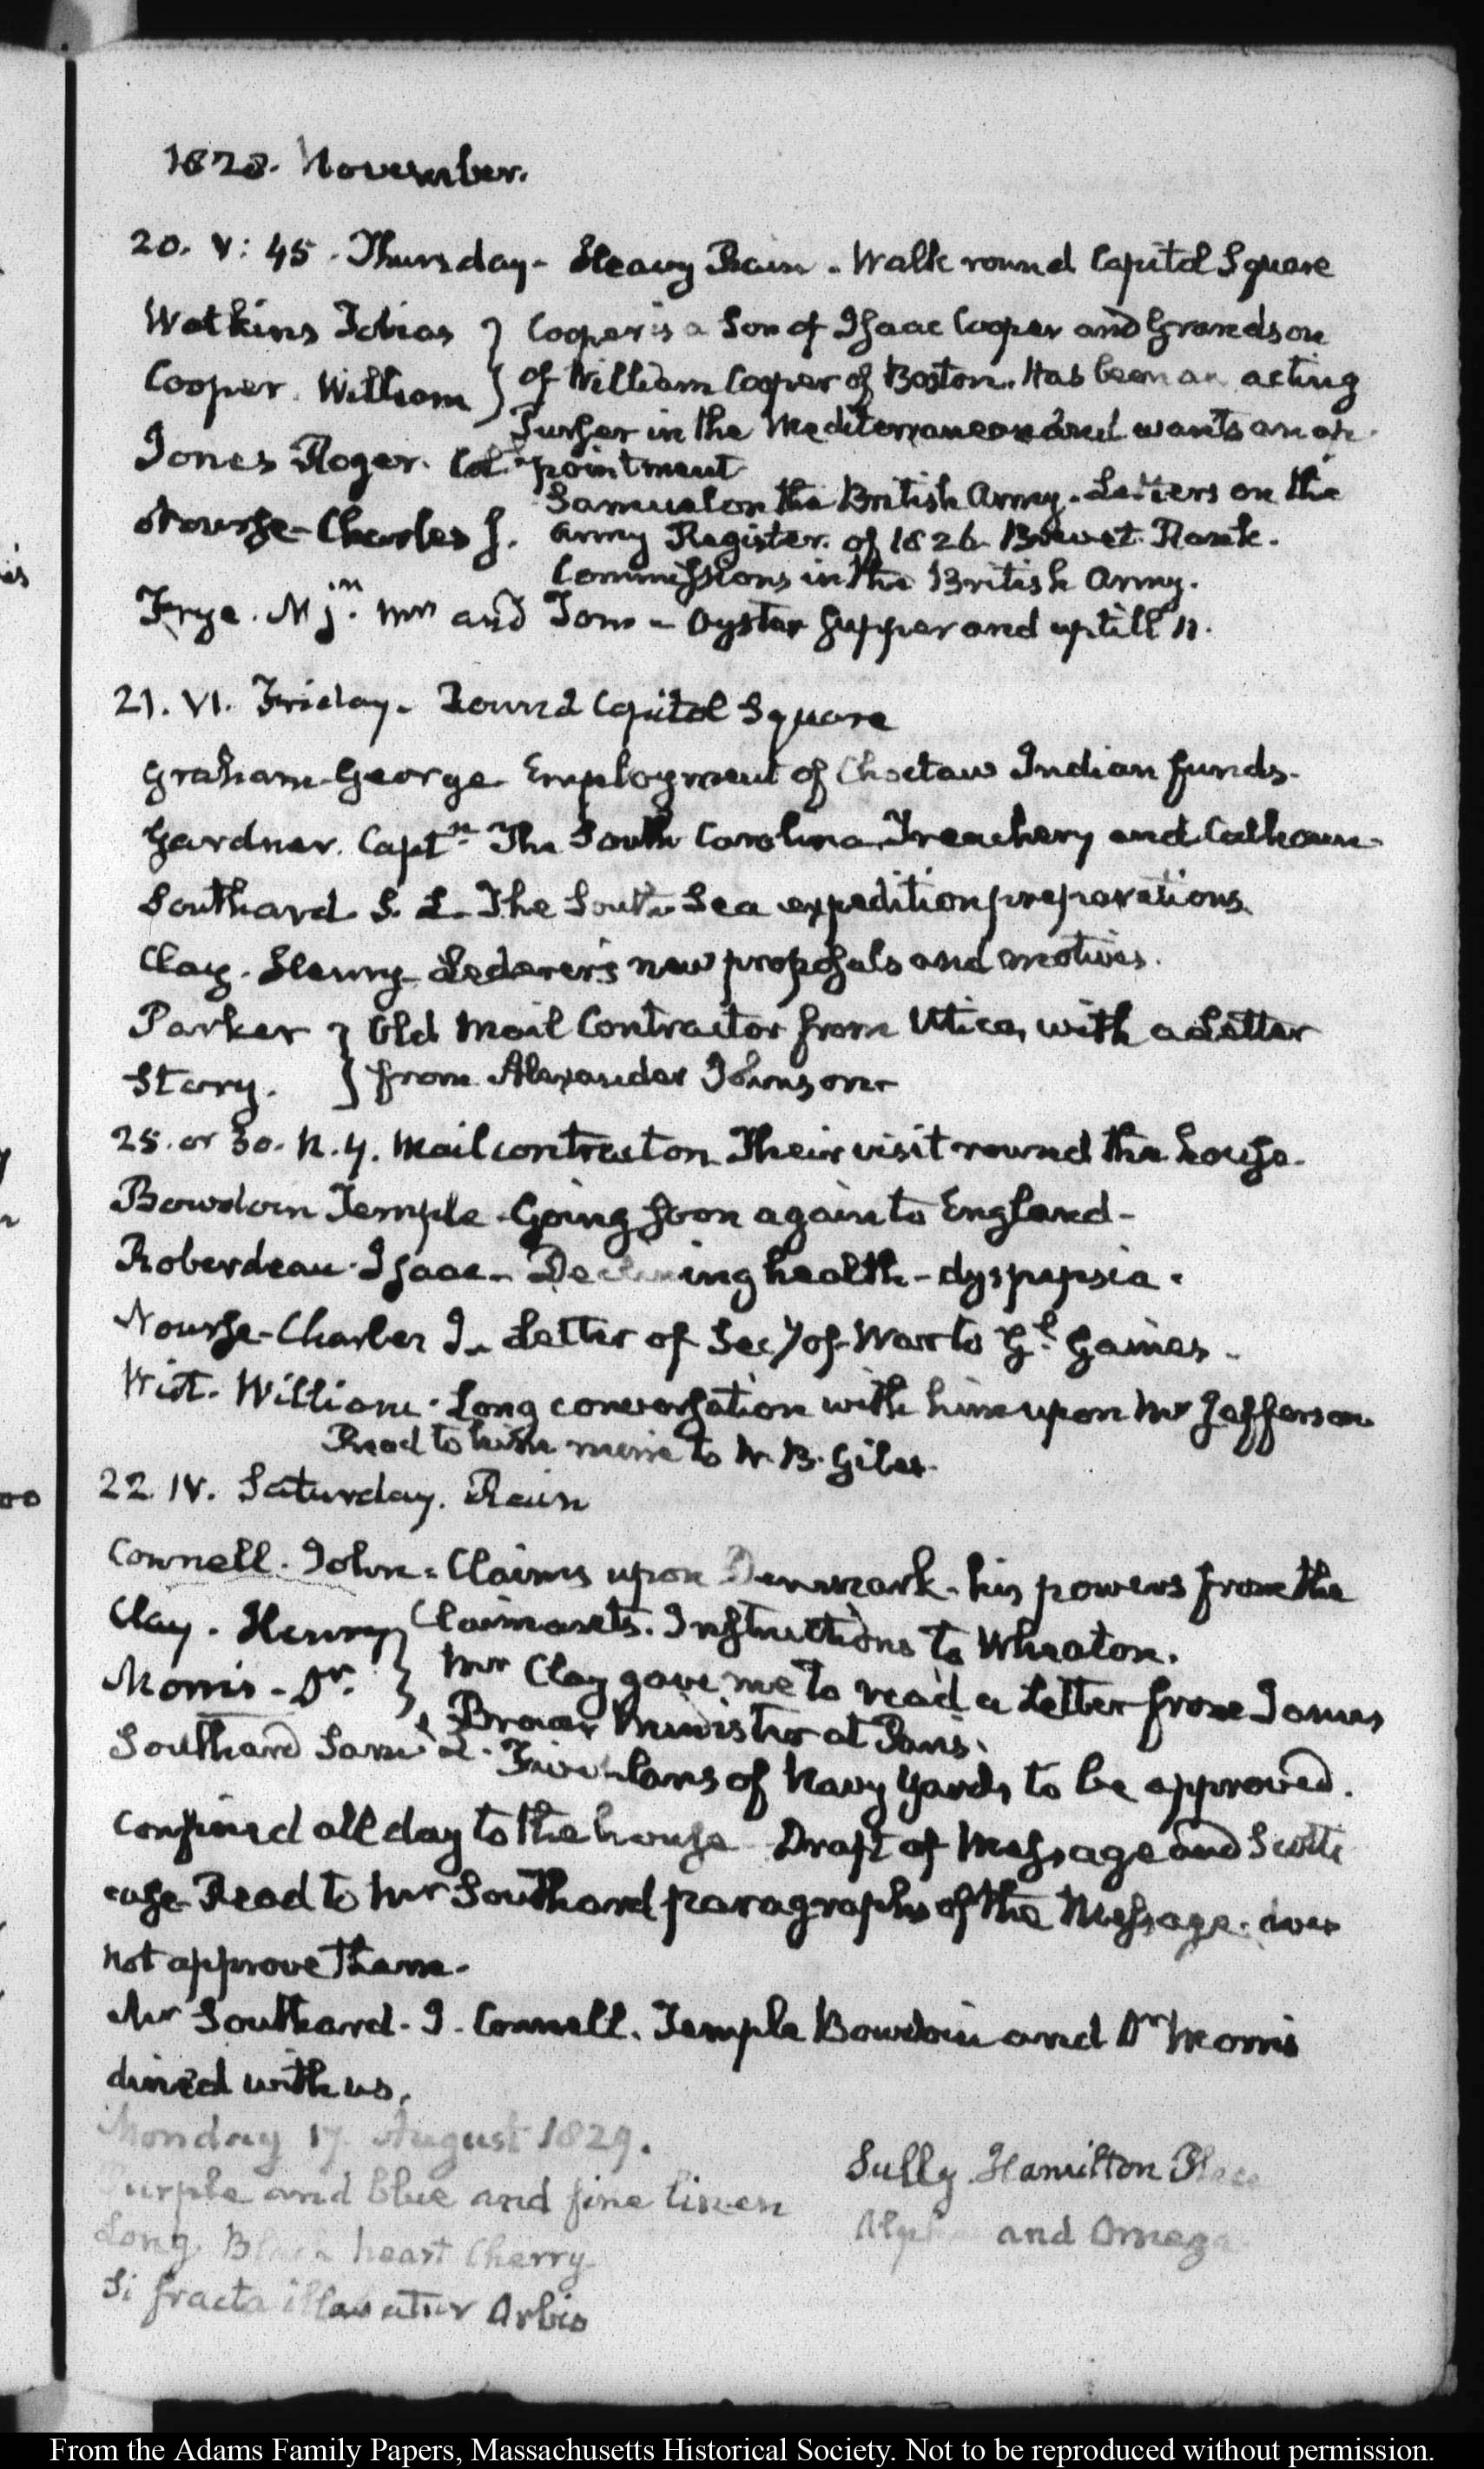 1828. November.
20. V: 45. Thursday- Heavy Rain. Walk round Capitol Square
Watkins Tobias } Cooper is a Son of Isaac Cooper and Grandson
Cooper. William } of William Cooper of Boston. Has been an acting
Purser in the Mediterranean and wants an ap-
Jones Roger. Col. pointment
Samuel on the British Army. Letters on the
Nourse-Charles J. Army Register of 1826 Brevet Rank.
Commissions in the British Army.
Frye. N jn. Mrs and Tom - Oyster Supper and up till 11.
21. VI. Friday. Round Capitol Square
Graham-George Employment of Choctaw Indian funds.
Gardner. Captn. The South Carolina Treachery and Calhoun.
Southard S. L. The South Sea expedition preparations.
Clay. Henry- Lederer's new proposals and motives.
Parker } Old Mail Contractor from Utica, with a Letter
Story. } from Alexander Johnson
25. or 30. N. Y. Mail contractors Their visit round the house.
Bowdoin Temple. Going soon again to England-
Roberdeau Isaac- Declining health-dyspepsia.
Nourse-Charles J. Letter of Secy of War to Gl. Gaines-
Wirt. William. Long conversation with him upon Mr Jefferson
Read to him mine to W. B. Giles.
22. IV. Saturday. Rain
Connell. John. Claims upon Denmark. his powers from the
Clay. Henry } Claimants. Instructions to Wheaton.
Morris-Dr. } Mr Clay gave me to read a Letter from James
Brown Minister at Paris.
Southard Saml L. Five plans of Navy Yards to be approved.
Confined all day to the house Draft of Message and Scott's
case. Read to Mr Southard paragraphs of the Message. does
not approve them.
Mr Southard. J. Connell. Temple Bowdoin and Dr Morris
dined with us.
Monday 17. August 1829.
Purple and blue and fine linen
Sully Hamilton Place
Long Black heart Cherry
Alpha and Omega
Si fracta illabatur Orbis
From the Adams Family Papers, Massachusetts Historical Society. Not to be reproduced without permission.